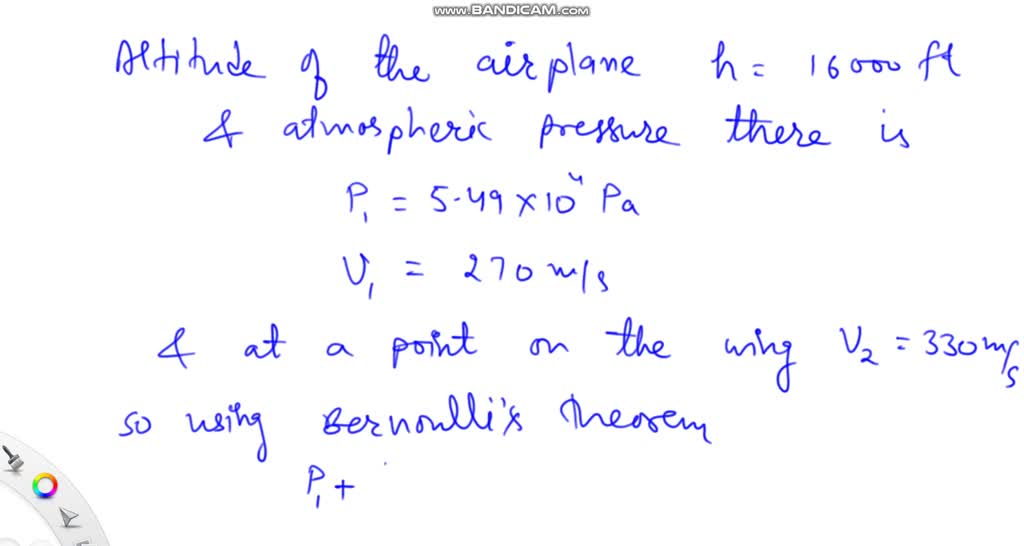 www.BANDICAM.com
Altitude of the airplane h = 16000 ft
& atmospheric pressure there is
P₁ = 5.49 × 10⁴ Pa
V₁ = 270 m/s
& at a point on the wing V₂ = 330 m/s
so using Bernoulli's theorem
P₁ +